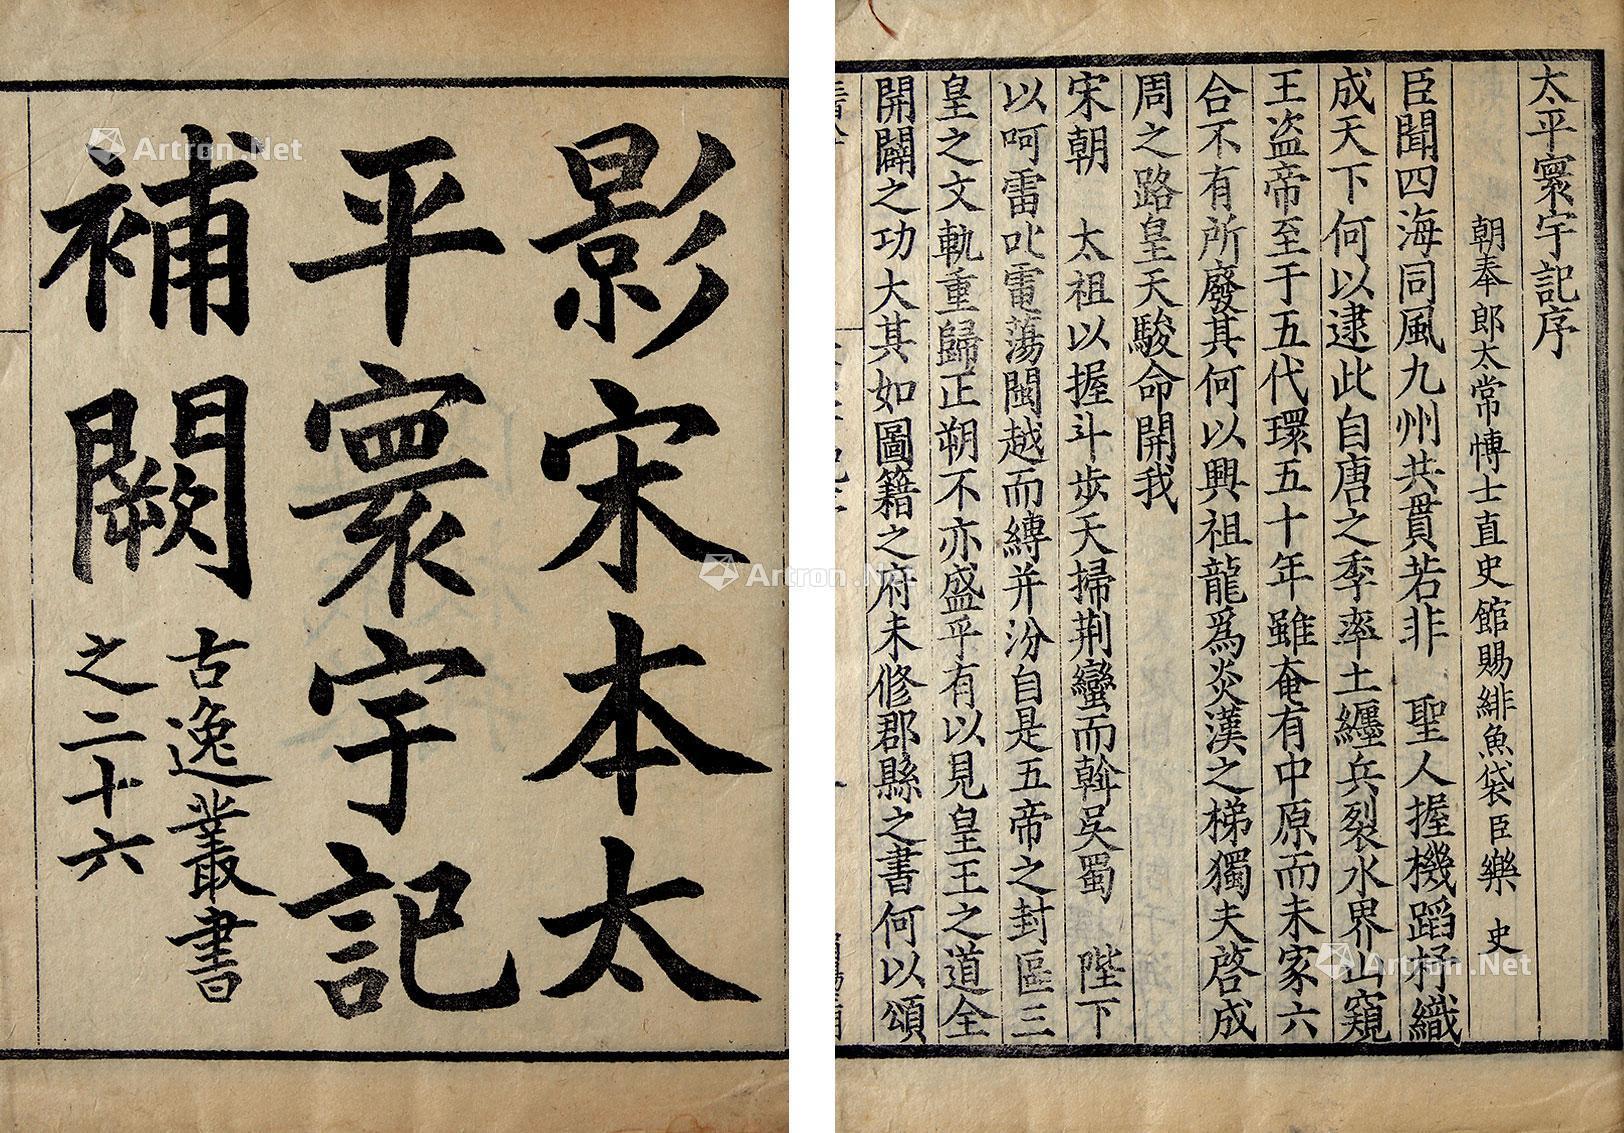 影宋本太
平寰宇記
補闕
古逸叢書
之二十六
太平寰宇記序
朝奉郎太常博士直史館賜緋魚袋臣樂 史
臣聞四海同風九州共貫若非 聖人握機蹈杼織
成天下何以逮此自唐之季率土纏兵裂水界山窺
王盗帝至于五代環五十年雖奄有中原而未家六
合不有所廢其何以興祖龍爲炎漢之梯獨夫啓成
周之路皇天駿命開我
宋朝 太祖以握斗步天掃荆蠻而斡吳蜀 陛下
以呵雷叱電蕩閩越而縛并汾自是五帝之封區三
皇之文軌重歸正朔不亦盛乎有以見皇王之道全
開闢之功大其如圖籍之府未修郡縣之書何以頌
Artron.Net
Artron.Net
Artron.Net